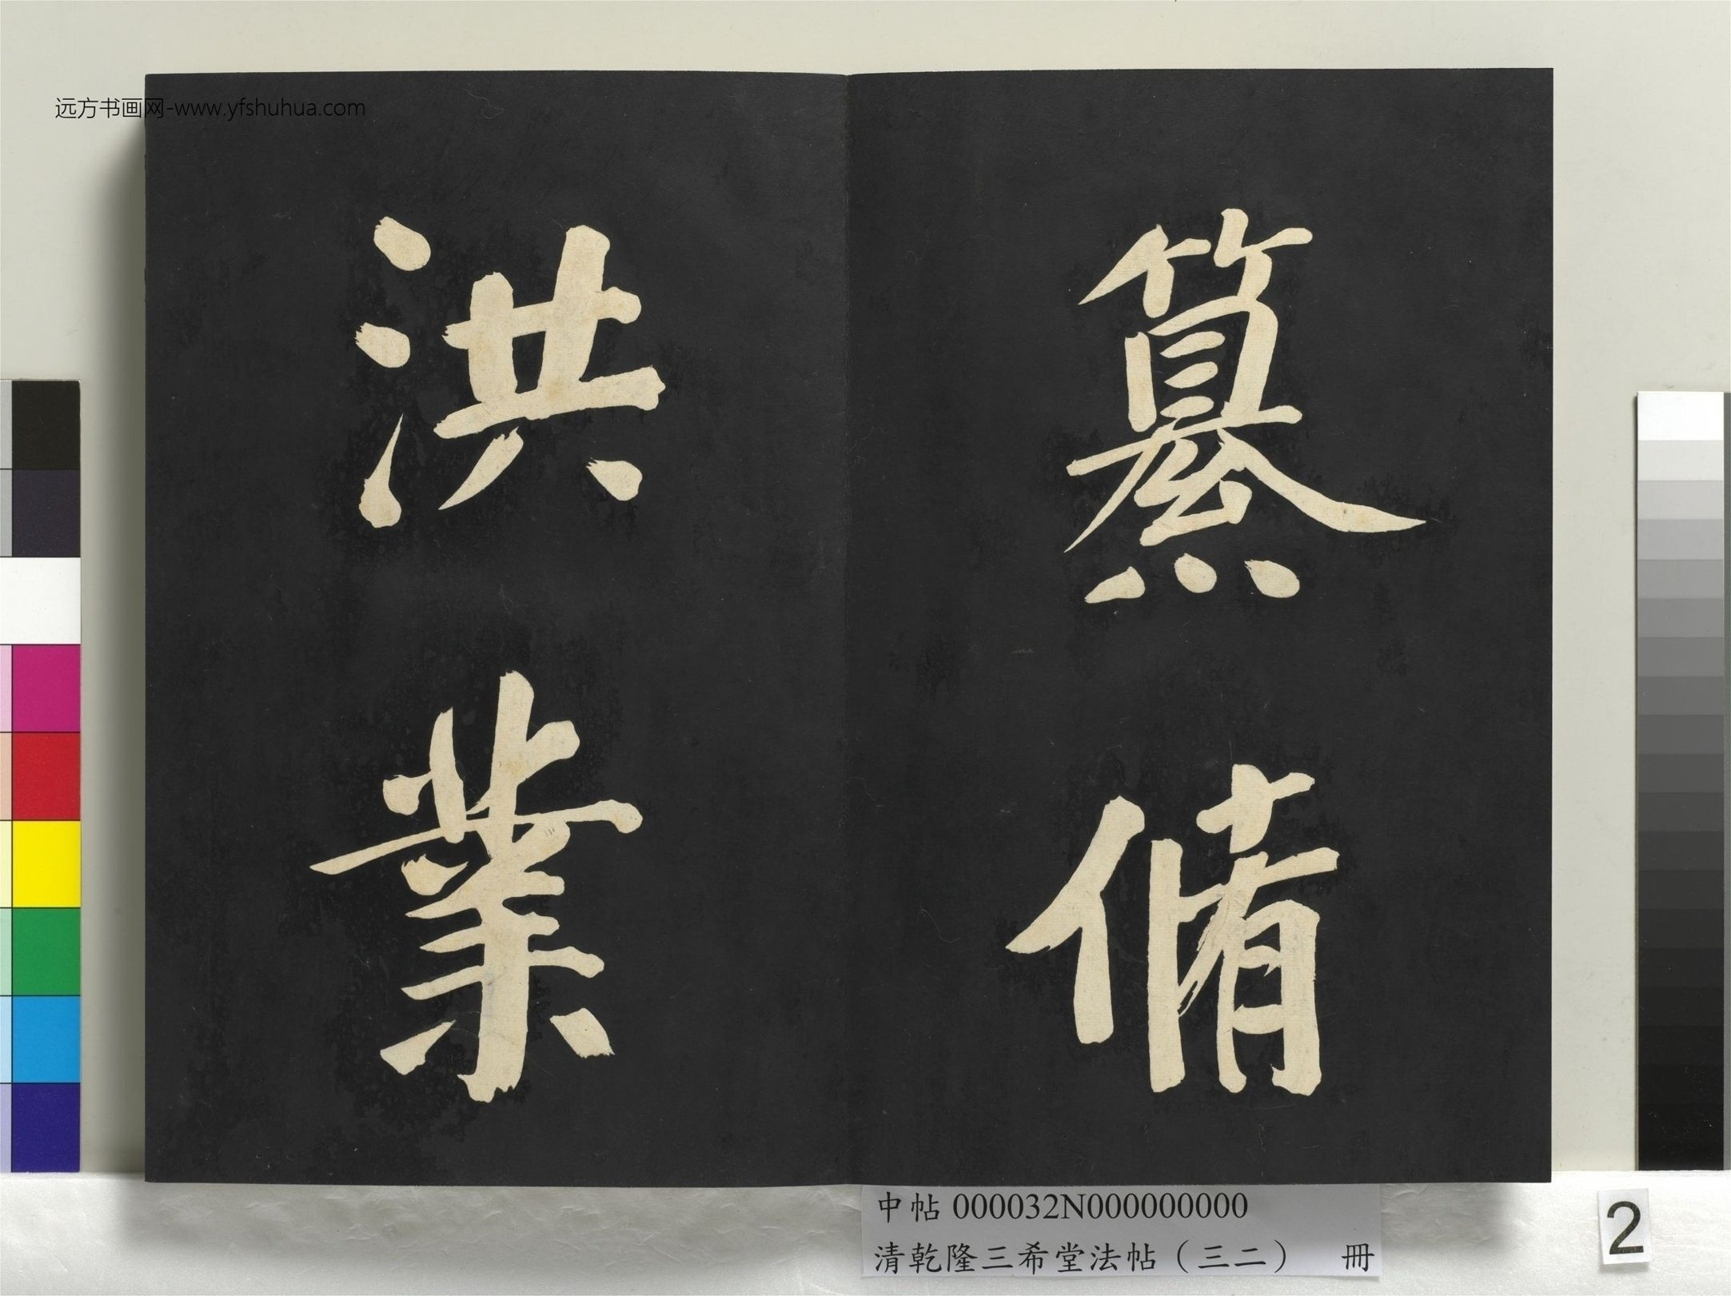 远方书画网-www.yfshuhua.com
纂脩
洪業
中帖 000032N000000000
清乾隆三希堂法帖（三二） 冊
2